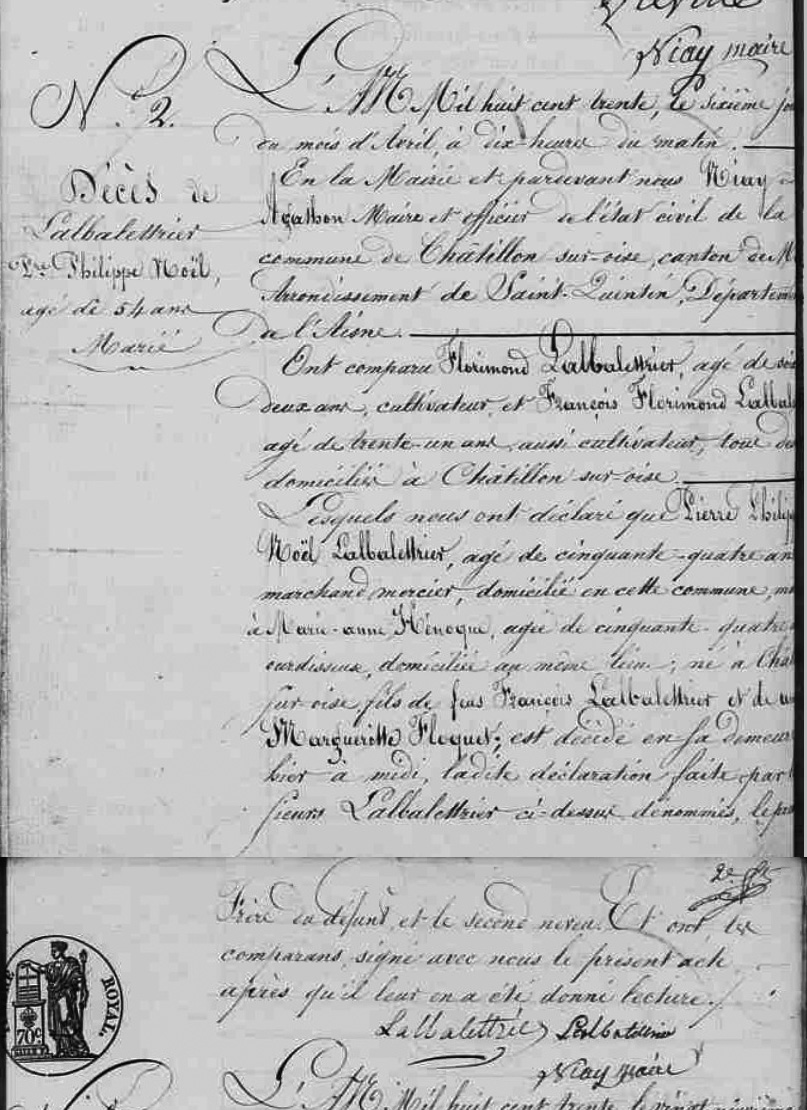 Niay maire
N.° 2.
Décès de
Lalbalettrier
Pre Philippe Noël,
agé de 54 ans
Marié
L'AN Mil huit cent trente, le sixième jo
du mois d'Avril, à dix heures du matin.
En la Mairie et pardevant nous Niay
Agathon Maire et officier de l'état civil de la
commune de Châtillon sur-oise, canton de M
Arrondissement de Saint-Quentin, Départeme
de l'Aisne.
Ont comparu Florimond Lalbalettrier, agé de soi
deux ans, cultivateur, et François Florimond Lalbal
agé de trente-un ans, aussi cultivateur, tous de
domiciliés à Châtillon sur-oise.
Lesquels nous ont déclaré que Pierre Philip
Noël Lalbalettrier, agé de cinquante-quatre an
marchand mercier, domicilié en cette commune, m
à Marie-anne Hénoque, agée de cinquante-quatre
ourdisseuse, domiciliée au même lieu; né à Chât
sur oise, fils de feus François Lalbalettrier et de
Margueritte Floquet; est décédé en sa demeur
hier à midi, ladite déclaration faite par
sieurs Lalbalettrier ci-dessus dénommés, le
2e
Frère du défunt, et le second neveu. Et ont, les
comparans, signé avec nous le présent acte
après qu'il leur en a été donné lecture.
Lalbalettrié Lalbalettrier
Niay maire
ROYAL.
70c
L'AN Mil huit cent trente, le vingt